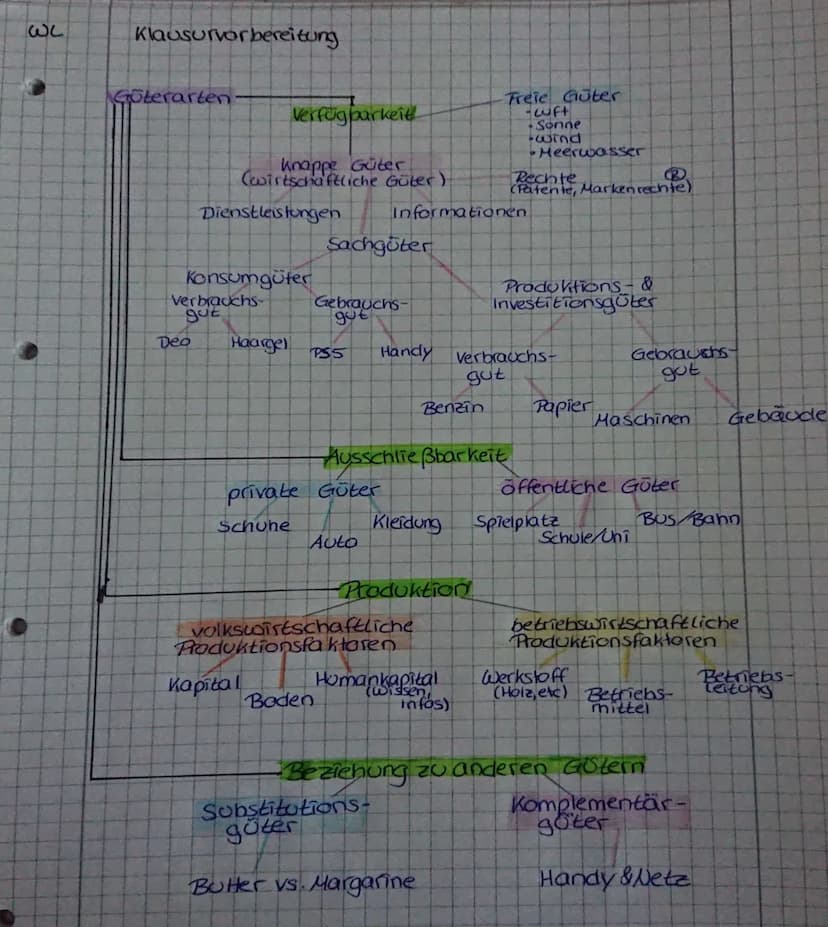 WL Klausurvorbereitung
Güterarten
Verfügbarkeit
Freie Güter
- Luft
• Sonne
• Wind
• Meerwasser
Knappe Güter
(wirtschaftliche Güter)
Rechte ®
(Patente, Markenrechte)
Dienstleistungen Informationen
Sachgüter
Konsumgüter
Produktions- &
Investitionsgüter
Verbrauchs-
gut
Gebrauchs-
gut
Deo Haargel PS5 Handy
Verbrauchs-
gut
Gebrauchs-
gut
Benzin Papier Maschinen Gebäude
Ausschließbarkeit
private Güter öffentliche Güter
Schuhe Auto Kleidung
Spielplatz Schule/Uni Bus/Bahn
Produktion
volkswirtschaftliche
Produktionsfaktoren
betriebswirtschaftliche
Produktionsfaktoren
Kapital
Boden
Humankapital
(Wissen,
infos)
Werkstoff
(Holz, etc)
Betriebs-
mittel
Betriebs-
leitung
Beziehung zu anderen Gütern
Substitutions-
güter
Komplementär-
güter
Butter vs. Margarine
Handy & Netz